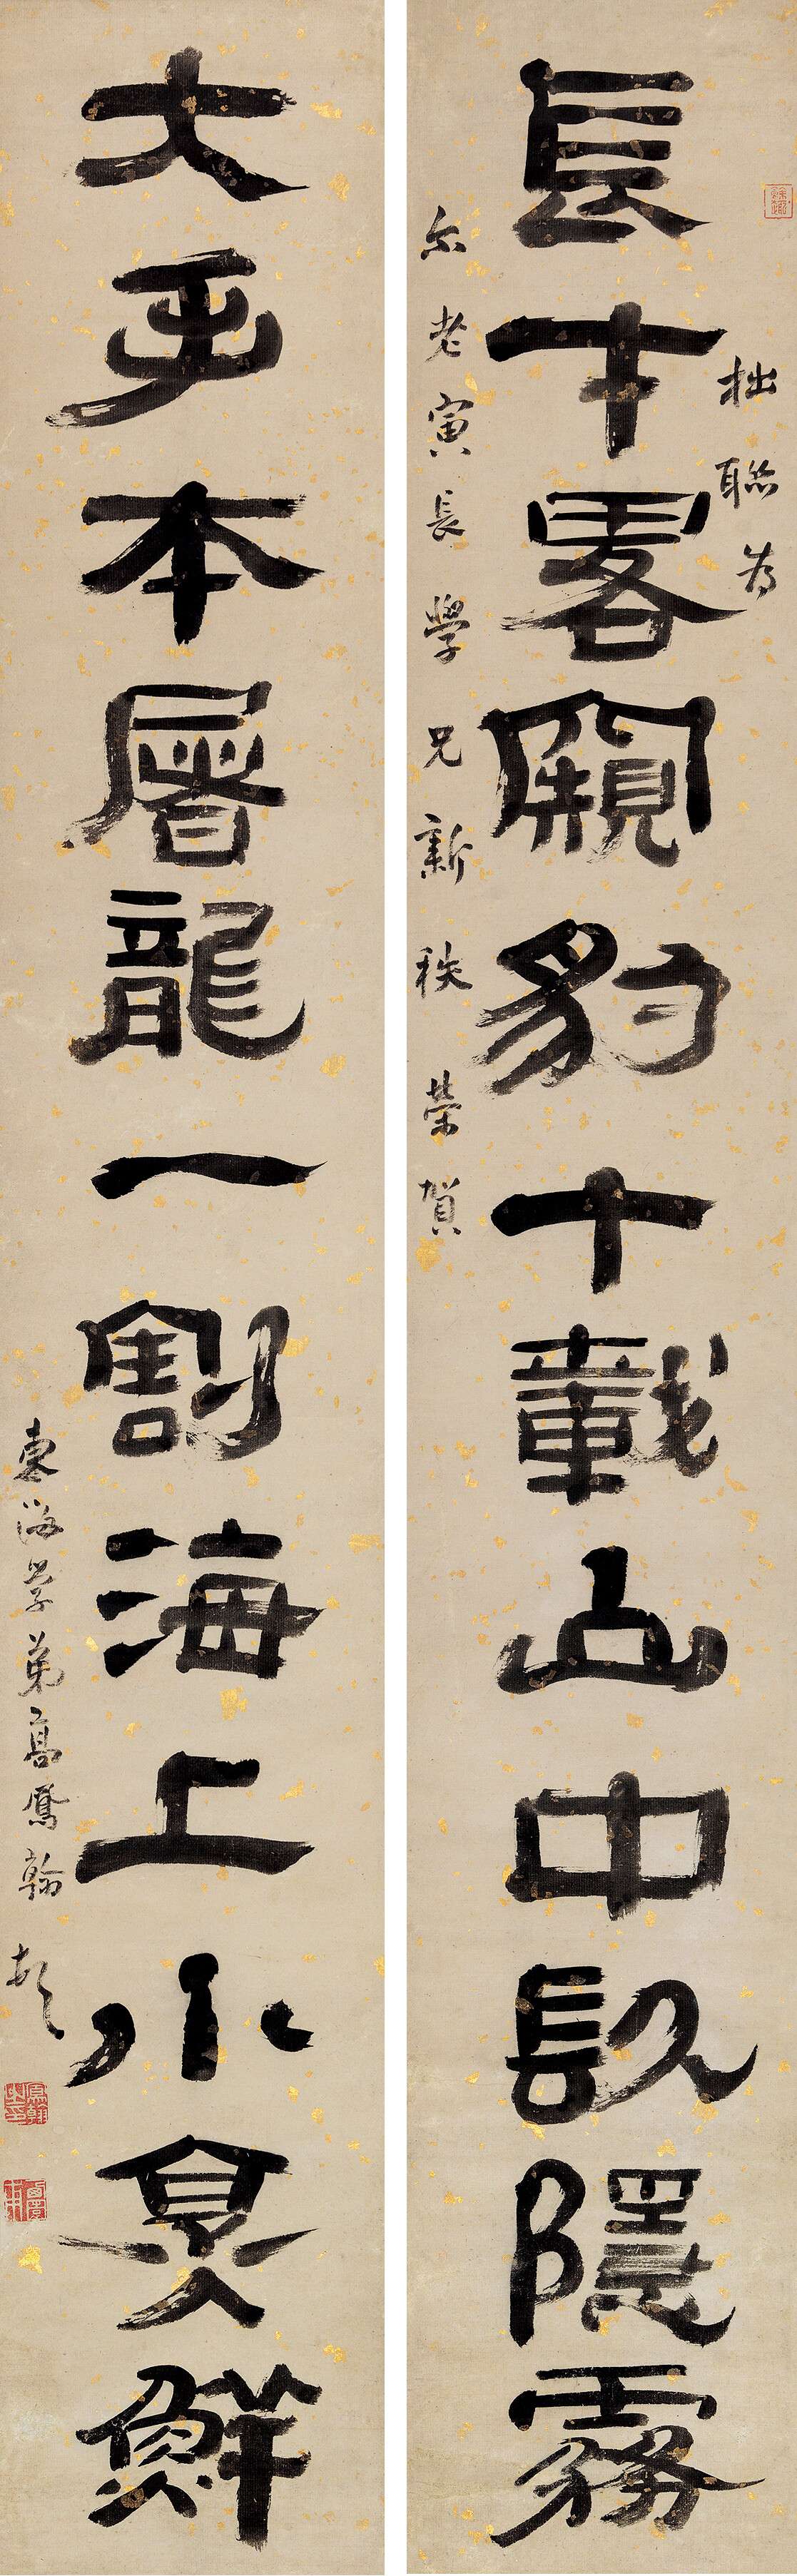 拙聯為
長才畧窺豹十載山中镹隱霧
尔老寅長學兄新秩榮賀
大手本屠龍一割海上小烹鮮
東海学弟高鳳翰